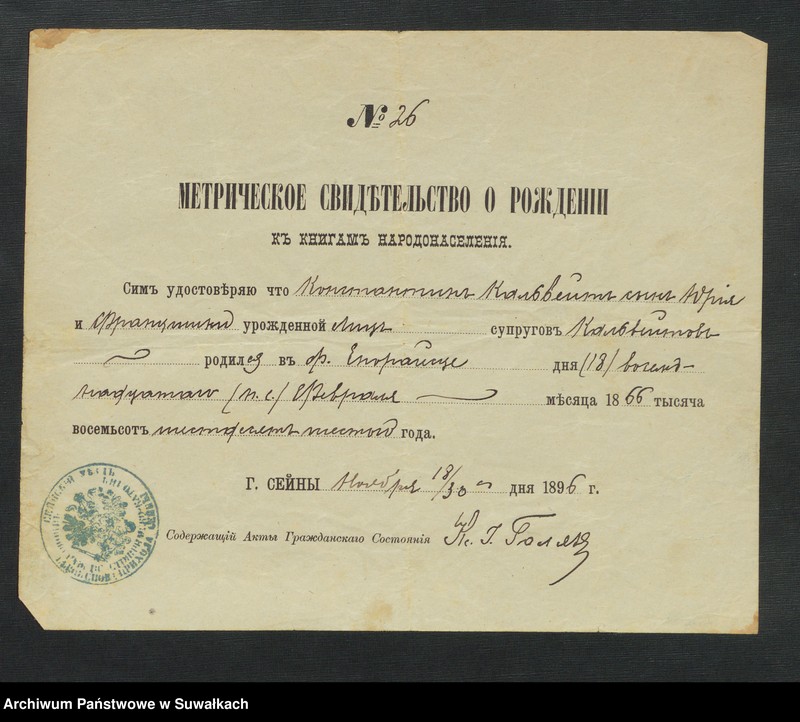 № 26
МЕТРИЧЕСКОЕ СВИДѢТЕЛЬСТВО О РОЖДЕНІИ
КЪ КНИГАМЪ НАРОДОНАСЕЛЕНІЯ.
Симъ удостовѣряю что Константинъ Кальвейтъ сынъ Юрія
и Францишки урожденной Лицъ супруговъ Кальвейтовъ
родился въ ф. дня (18) восем-
надцатаго (н. с.) Февраля мѣсяца 1866 тысяча
восемьсотъ шестдесятъ шестый года.
Г. СЕЙНЫ Ноября 18/30 дня 1896 г.
Содержащій Акты Гражданскаго Состоянія Кс. І.
Archiwum Państwowe w Suwałkach